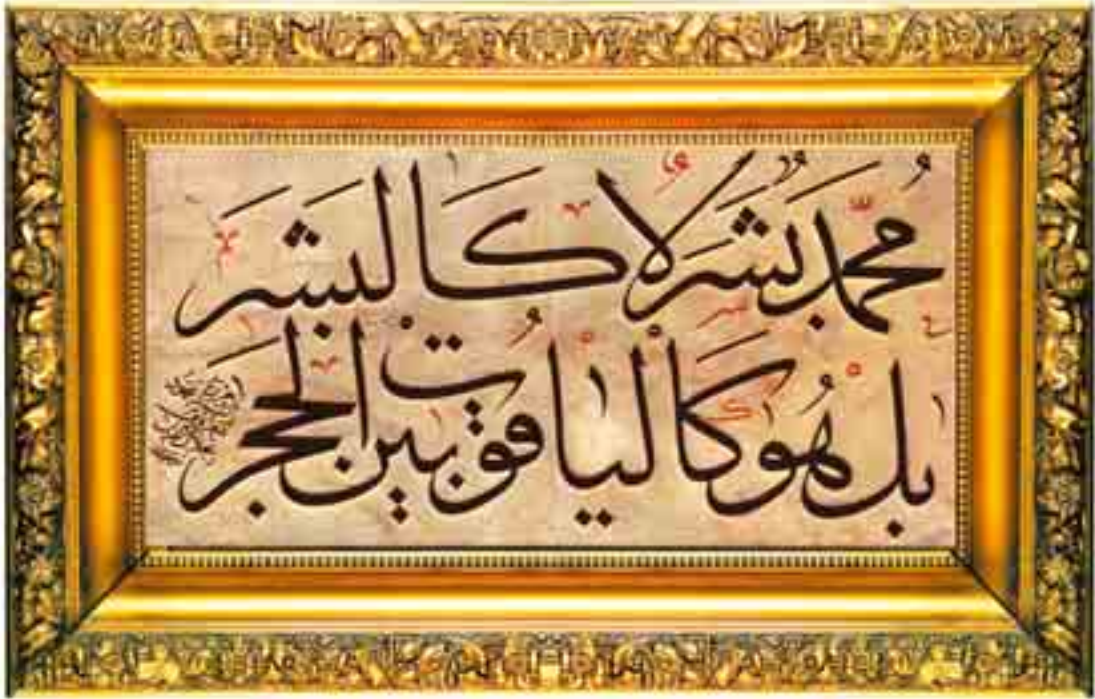 مُحَمَّد بَشَرٌ لَا كَالبَشَر
بَل هُوَ كَاليَاقُوتِ بَينَ الحَجَر